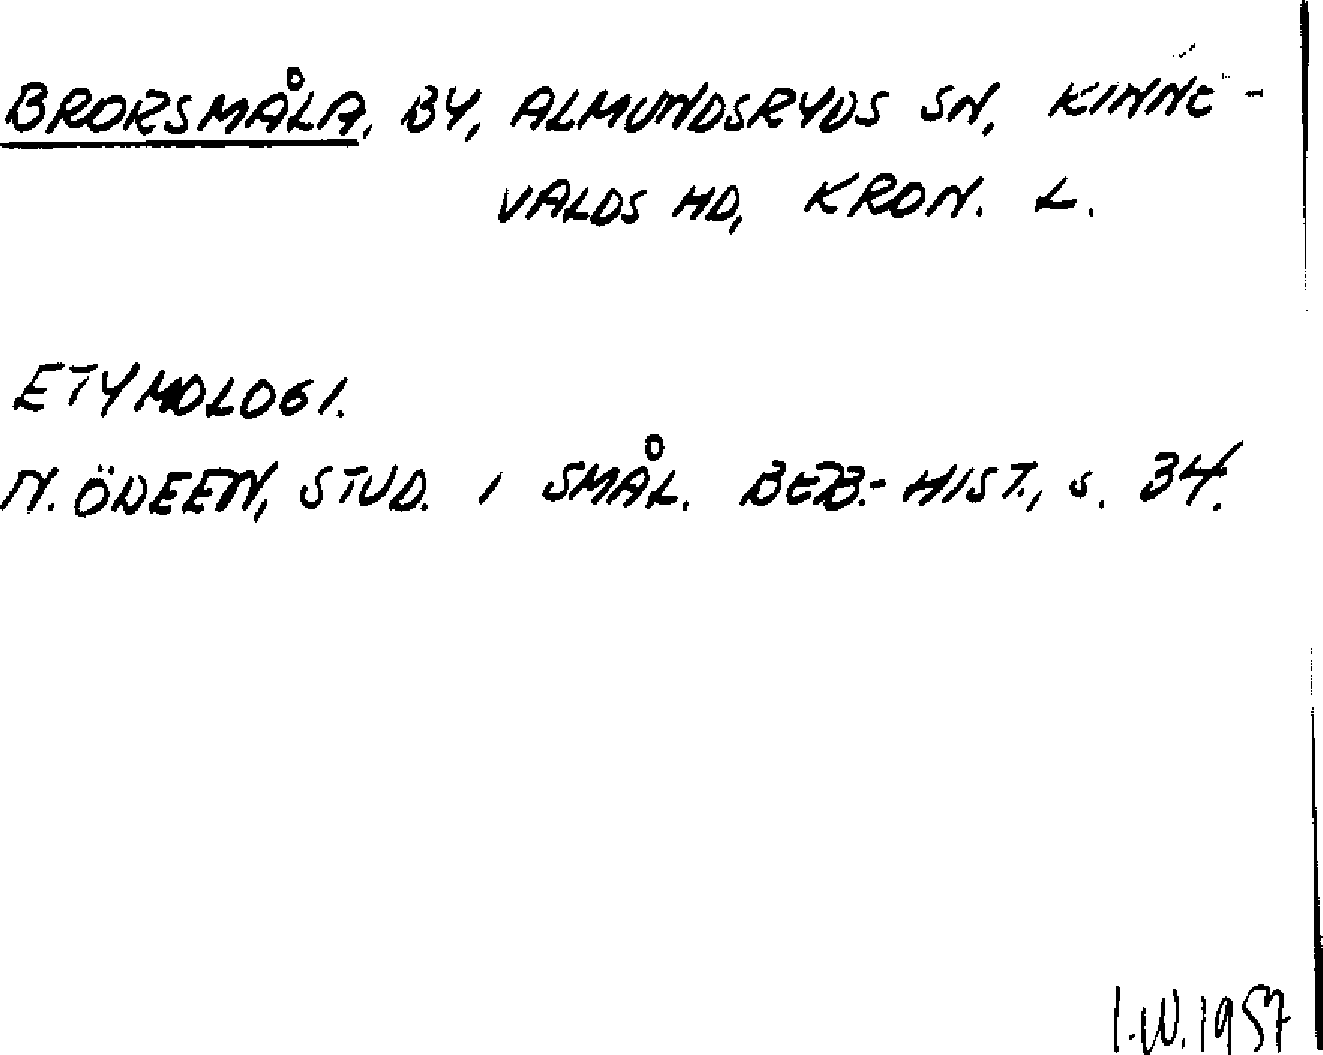 BRORSMÅLA, BY, ALMUNDSRYDS SN, KINNE-
VALDS HD, KRON. L.
ETYMOLOGI.
N. ÖDEEN, STUD. I SMÅL. BEB.-HIST., S. 34.
I.W. 1957